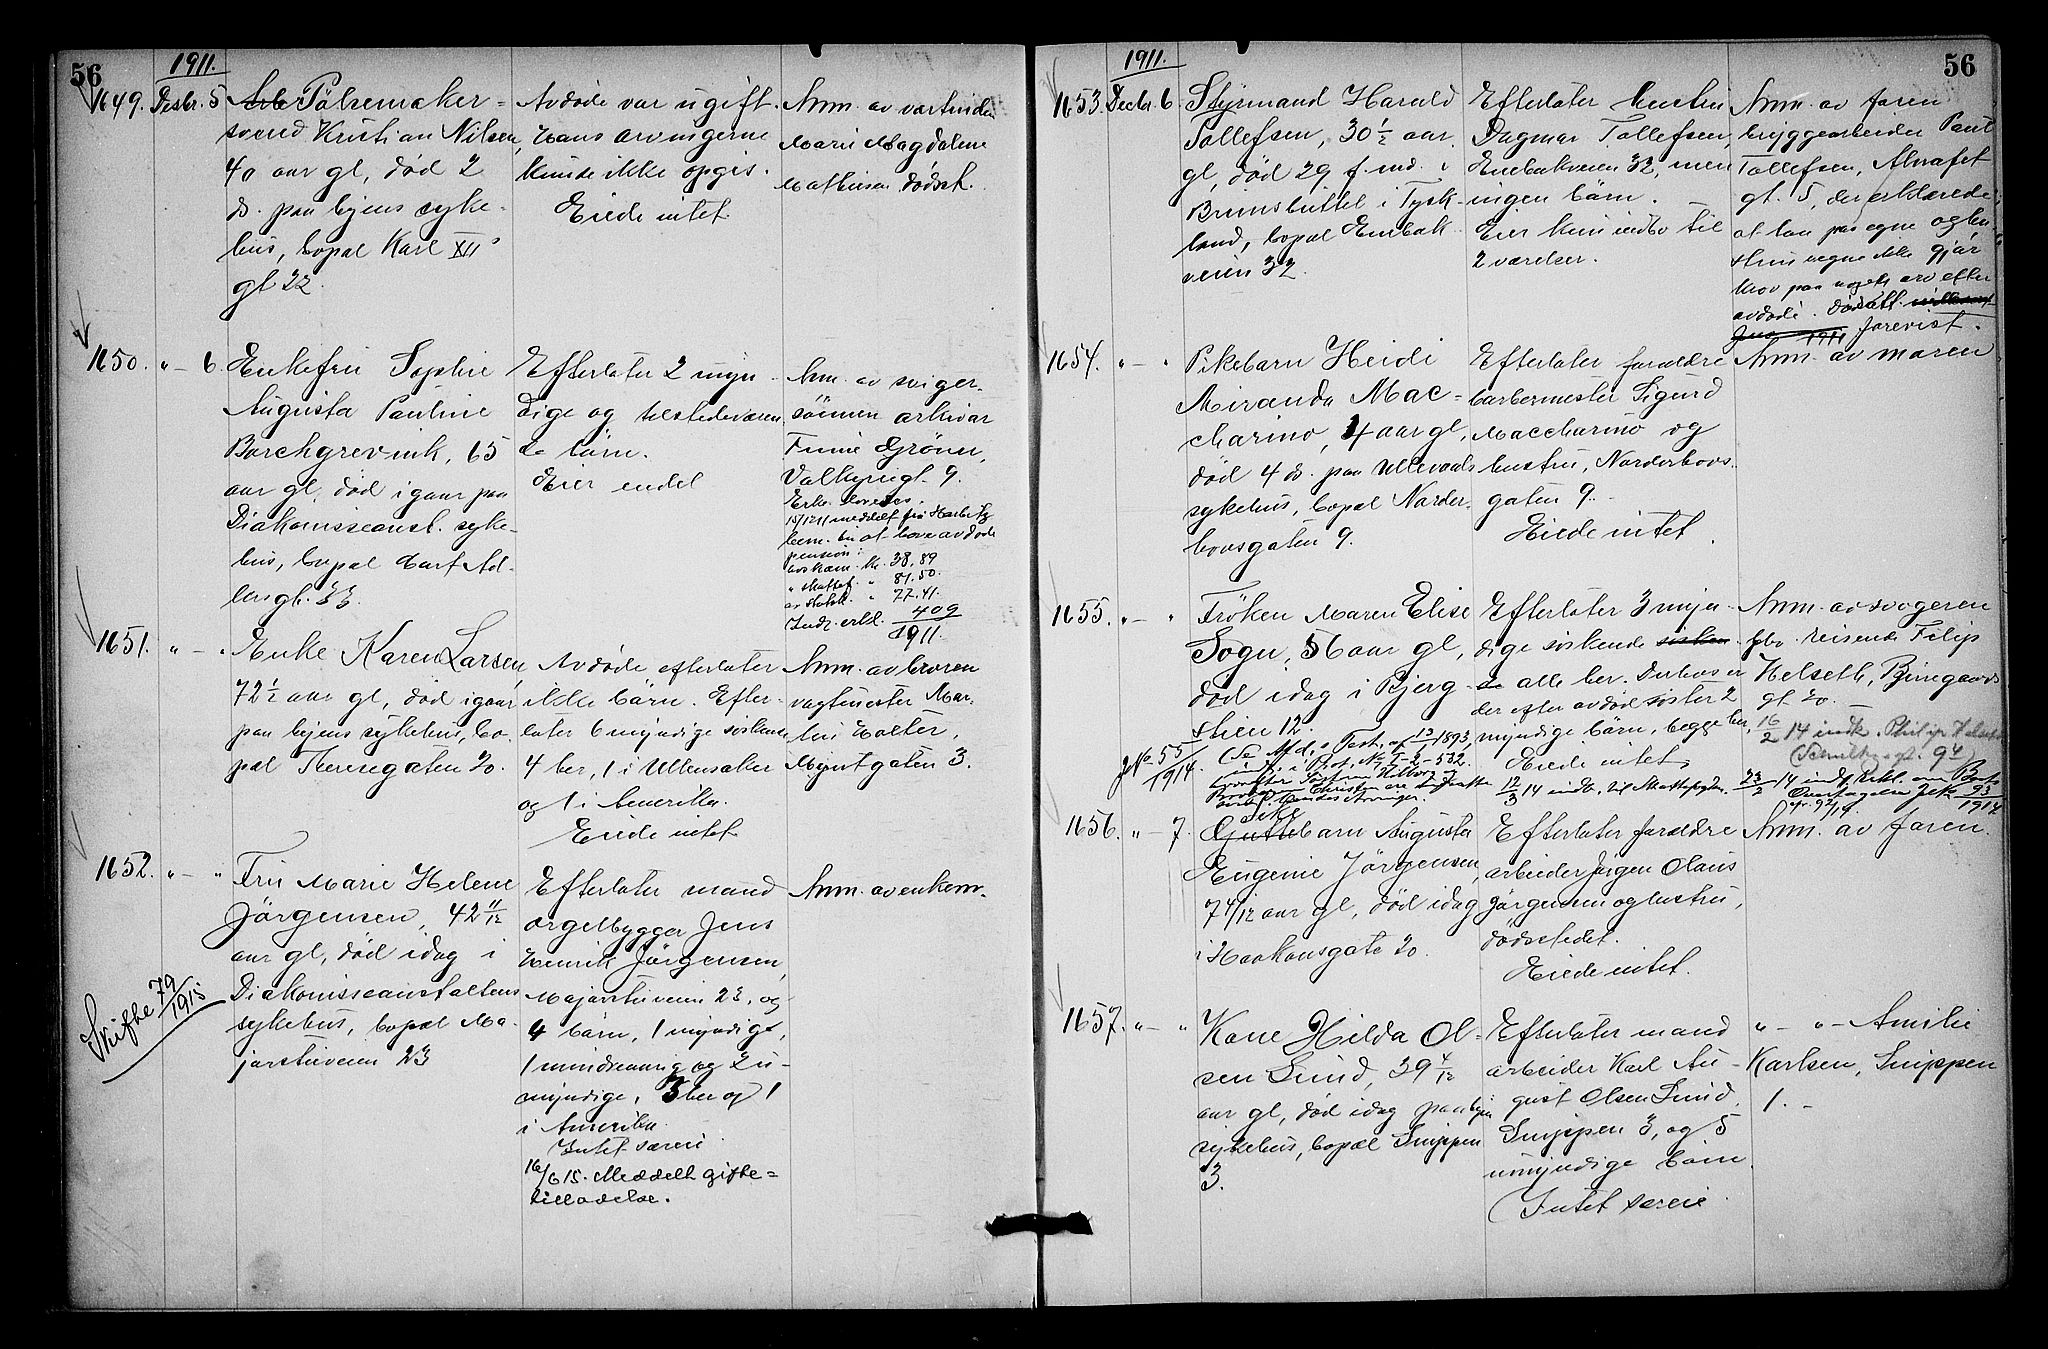 56
1911.
1649. Desbr. 5
Arb Pölsemaker =
svend Kristian Nilsen,
40 aar gl, död 2
ds. paa byens syke-
hus, bopæl Karl XII s
gt 22.
Avdöde var ugift.
Hans arvingerne
kunde ikke opgis.
Eiede intet
Anm. av vertinden
Marie Magdalene
Mathisen dödsst.
1650. " - 6.
Enkefru Sophie
Augusta Pauline
Borchgrevink, 65
aar gl, död igaar paa
Diakonisseanst. syke-
hus, bopæl Curt Ad-
lersgt. 33
Efterlater 2 myn-
dige og tilstedeværen
de börn.
Eier endel
Anm. av sviger-
sönnen arkivar
Grönn,
Valkyriegt. 9.
15/12 11 meddelt
at
pension:
kr. 38,89
" " 81.50.
" 77.41.
Indr. erkl. 409
1911.
1651. " - "
Enke Karen Larsen,
72 1/2 aar gl, död igaar
paa byens sykehus, bo-
pæl Theresegaten 20.
Avdöde efterlater
ikke börn. Efter-
later 6 myndige söskende
4 her, 1 i Ullensaker
og 1 i Amerika.
Eiede intet
Anm. av broren
vagtmester Mar-
tin Holter,
Myntgaten 3.
1652. " - "
Skifte 79/1915
Fru Marie Helene
Jörgensen, 42 11/12
aar gl, död idag i
Diakonisseanstaltens
sykehus, bopæl Ma-
jorstuveien 23
Efterlater mand
orgelbygger Jens
Henrik Jörgensen,
Majorstuveien 23, og
4 börn, 1 myndige,
1 mindreaarig og 2 u-
myndige, 3 her og 1
i Amerika.
Intet særeie
16/6 15. Meddelt gifte=
tilladelse.
Anm. av enkem.
56
1911.
1653. Decbr. 6.
Styrmand Harald
Tollefsen, 30 1/2 aar
gl, död 29 f. md. i
Brunsbüttel i Tysk-
land, bopæl Enebak
veien 32.
Efterlater hustru
Dagmar Tollefsen,
Enebakveien 32, men
ingen börn.
Eier kun indbo til
2 værelser.
Anm. av faren
bryggearbeider Paul
Tollefsen, Alnafet
gt. 5, der erklærede
at han paa egne og hu-
strus vegne ikke gjör
krav paa nogets arv efter
avdöde. Dödsatt.
1911 forevist.
1654. " - "
Pikebarn Heidi
Miranda Mac =
charino, 4 aar gl,
död 4 ds. paa Ullevaals
sykehus, bopæl Norder-
hovsgaten 9.
Efterlater forældre
barbermester Sigurd
Maccharino og
hustru, Norderhovs-
gaten 9.
Eiede intet.
Anm. av moren
1655. " - "
Fröken Maren Elise
Sogn, 56 aar gl,
död idag i Bjerg-
stien 12.
J No 55/1914.
(Se Afd. s Test. af 13/7 1893,
i Prot. No 7-2-532.
Efterlater 3 myn-
dige söskende sösken
de alle her. Derhos er
der efter avdöd söster 2
myndige börn, begge her,
Eiede intet,
12/3 14 indb. til Skattefogden.
Anm. av svogeren
fhv. reisende Filip
Helseth, Birregaards
gt 20.
16/2 14 indk. Philip Helseth
Schultzgt. 9 IV
23/2 14 indk. erkl. om Bo
Overtagelse J No 93/1914
1656. " - 7.
Pike
Guttebarn Augusta
Eugenie Jörgensen,
7 4/12 aar gl, död idag
i Haakonsgate 20.
Efterlater forældre
arbeider Jörgen Olaus
Jörgensen og hustru,
dödsstedet.
Eiede intet.
Anm. av faren.
1657. " - "
Kone Hilda Ol-
sen Lund, 39 4/12
aar gl, död idag paa byens
sykehus, bopæl Snippen
3.
Efterlater mand
arbeider Karl Au-
gust Olsen Lund,
Snippen 3, og 5
umyndige börn.
Intet særeie
" - " - Amilie
Karlsen, Snippen
1. -